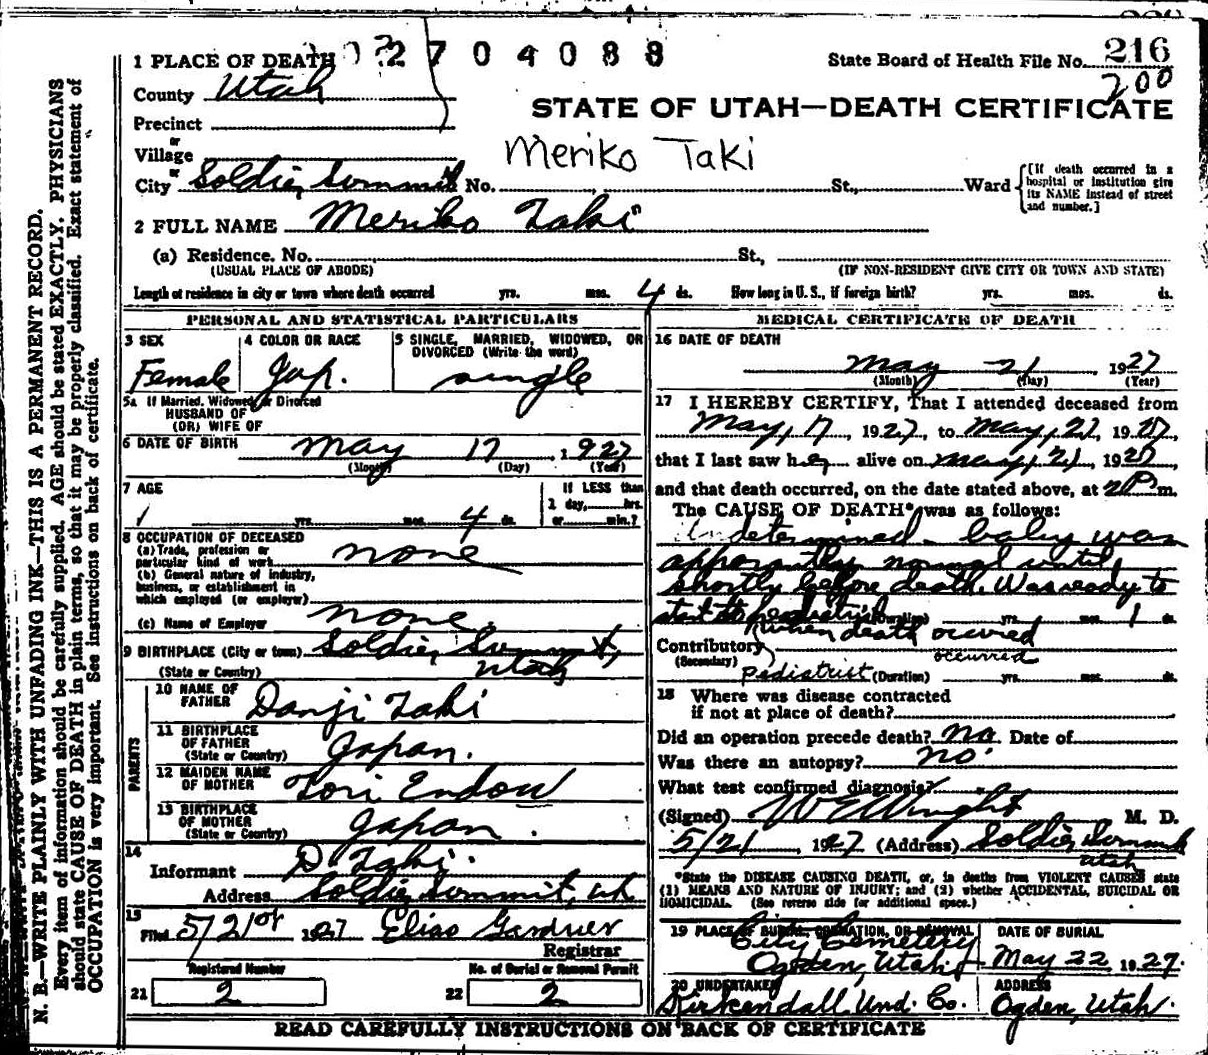 1 PLACE OF DEATH 2 7 0 4 0 8 8 State Board of Health File No. 216
County Utah 200
STATE OF UTAH—DEATH CERTIFICATE
Precinct
or
Village
Meriko Taki
or
City Soldier Summit No. St., Ward {[If death occurred in a hospital or institution give its NAME instead of street and number.]
2 FULL NAME Meriko Taki
(a) Residence. No. St.,
(USUAL PLACE OF ABODE) (IF NON-RESIDENT GIVE CITY OR TOWN AND STATE)
Length of residence in city or town where death occurred yrs. mos. 4 ds. How long in U. S., if foreign birth? yrs. mos. ds.
PERSONAL AND STATISTICAL PARTICULARS
3 SEX
Female
4 COLOR OR RACE
Jap.
5 SINGLE, MARRIED, WIDOWED, OR
DIVORCED (Write the word)
single
5a If Married, Widowed, or Divorced
HUSBAND OF
(OR) WIFE OF
6 DATE OF BIRTH May 17 1927
(Month) (Day) (Year)
7 AGE
yrs. mos. 4 ds.
If LESS than
1 day, hrs.
or min.?
8 OCCUPATION OF DECEASED
(a) Trade, profession or
particular kind of work none
(b) General nature of industry,
business, or establishment in
which employed (or employer)
(c) Name of Employer none
9 BIRTHPLACE (City or town) Soldier Summit,
(State or Country) Utah
PARENTS
10 NAME OF
FATHER Danji Taki
11 BIRTHPLACE
OF FATHER
(State or Country) Japan.
12 MAIDEN NAME
OF MOTHER Tori Endow
13 BIRTHPLACE
OF MOTHER
(State or Country) Japan.
14
Informant D. Taki.
Address Soldier Summit, Ut
15
Filed 5/21st 1927 Elias Gardner
Registrar
Registered Number
21 2
No. of Burial or Removal Permit
22 2
MEDICAL CERTIFICATE OF DEATH
16 DATE OF DEATH
May 21 1927
(Month) (Day) (Year)
17 I HEREBY CERTIFY, That I attended deceased from
May, 17, 1927, to May, 21, 1927,
that I last saw her alive on May, 21, 1927,
and that death occurred, on the date stated above, at 2 P m.
The CAUSE OF DEATH* was as follows:
Undetermined - baby was
apparently normal until
shortly before death. Was ready to
start to pediatrist (Duration) yrs. mos. 1 ds.
when death occured
Contributory occurred
(Secondary)
Pediatrist (Duration) yrs. mos. ds.
18 Where was disease contracted
if not at place of death?
Did an operation precede death? No. Date of
Was there an autopsy? No.
What test confirmed diagnosis?
(Signed) W E Wright M. D.
5/21, 1927 (Address) Soldier Summit
Utah
*State the DISEASE CAUSING DEATH, or, in deaths from VIOLENT CAUSES state
(1) MEANS AND NATURE OF INJURY; and (2) whether ACCIDENTAL, SUICIDAL OR
HOMICIDAL. (See reverse side for additional space.)
19 PLACE OF BURIAL, CREMATION, OR REMOVAL
City Cemetery
Ogden, Utah
DATE OF BURIAL
May 22, 1927.
20 UNDERTAKER
Kirkendall Und. Co.
ADDRESS
Ogden, Utah.
READ CAREFULLY INSTRUCTIONS ON BACK OF CERTIFICATE
N. B.—WRITE PLAINLY WITH UNFADING INK—THIS IS A PERMANENT RECORD.
Every item of information should be carefully supplied. AGE should be stated EXACTLY. PHYSICIANS
should state CAUSE OF DEATH in plain terms, so that it may be properly classified. Exact statement of
OCCUPATION is very important. See instructions on back of certificate.